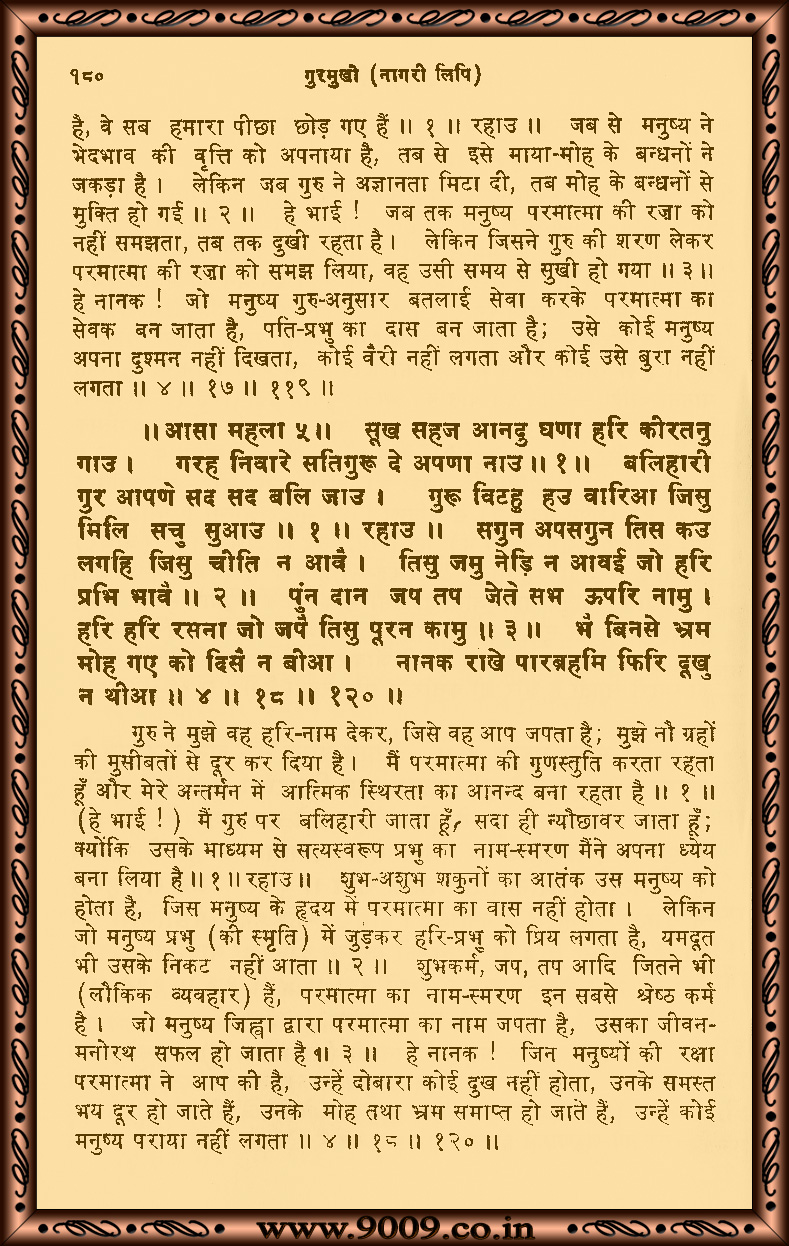 १८० गुरमुखी (नागरी लिपि)
है, वे सब हमारा पीछा छोड़ गए हैं ॥ १ ॥ रहाउ ॥ जब से मनुष्य ने
भेदभाव की वृत्ति को अपनाया है, तब से इसे माया-मोह के बन्धनों ने
जकड़ा है । लेकिन जब गुरु ने अज्ञानता मिटा दी, तब मोह के बन्धनों से
मुक्ति हो गई ॥ २ ॥ हे भाई ! जब तक मनुष्य परमात्मा की रज़ा को
नहीं समझता, तब तक दुखी रहता है । लेकिन जिसने गुरु की शरण लेकर
परमात्मा की रज़ा को समझ लिया, वह उसी समय से सुखी हो गया ॥ ३ ॥
हे नानक ! जो मनुष्य गुरु-अनुसार बतलाई सेवा करके परमात्मा का
सेवक बन जाता है, पति-प्रभु का दास बन जाता है; उसे कोई मनुष्य
अपना दुश्मन नहीं दिखता, कोई वैरी नहीं लगता और कोई उसे बुरा नहीं
लगता ॥ ४ ॥ १७ ॥ ११९ ॥
॥ आसा महला ५ ॥ सूख सहज आनदु घणा हरि कीरतनु
गाउ । गरह निवारे सतिगुरू दे अपणा नाउ ॥ १ ॥ बलिहारी
गुर आपणे सद सद बलि जाउ । गुरू विटहु हउ वारिआ जिसु
मिलि सचु सुआउ ॥ १ ॥ रहाउ ॥ सगुन अपसगुन तिस कउ
लगहि जिसु चीति न आवै । तिसु जमु नेड़ि न आवई जो हरि
प्रभि भावै ॥ २ ॥ पुंन दान जप तप जेते सभ ऊपरि नामु ।
हरि हरि रसना जो जपै तिसु पूरन कामु ॥ ३ ॥ भै बिनसे भ्रम
मोह गए को दिसै न बीआ । नानक राखे पारब्रहमि फिरि दूखु
न थीआ ॥ ४ ॥ १८ ॥ १२० ॥
गुरु ने मुझे वह हरि-नाम देकर, जिसे वह आप जपता है; मुझे नौ ग्रहों
की मुसीबतों से दूर कर दिया है । मैं परमात्मा की गुणस्तुति करता रहता
हूँ और मेरे अन्तर्मन में आत्मिक स्थिरता का आनन्द बना रहता है ॥ १ ॥
(हे भाई !) मैं गुरु पर बलिहारी जाता हूँ, सदा ही न्यौछावर जाता हूँ;
क्योंकि उसके माध्यम से सत्यस्वरूप प्रभु का नाम-स्मरण मैंने अपना ध्येय
बना लिया है ॥ १ ॥ रहाउ ॥ शुभ-अशुभ शकुनों का आतंक उस मनुष्य को
होता है, जिस मनुष्य के हृदय में परमात्मा का वास नहीं होता । लेकिन
जो मनुष्य प्रभु (की स्मृति) में जुड़कर हरि-प्रभु को प्रिय लगता है, यमदूत
भी उसके निकट नहीं आता ॥ २ ॥ शुभकर्म, जप, तप आदि जितने भी
(लौकिक व्यवहार) हैं, परमात्मा का नाम-स्मरण इन सबसे श्रेष्ठ कर्म
है । जो मनुष्य जिह्वा द्वारा परमात्मा का नाम जपता है, उसका जीवन-
मनोरथ सफल हो जाता है ॥ ३ ॥ हे नानक ! जिन मनुष्यों की रक्षा
परमात्मा ने आप की है, उन्हें दोबारा कोई दुख नहीं होता, उनके समस्त
भय दूर हो जाते हैं, उनके मोह तथा भ्रम समाप्त हो जाते हैं, उन्हें कोई
मनुष्य पराया नहीं लगता ॥ ४ ॥ १८ ॥ १२० ॥
www.9009.co.in